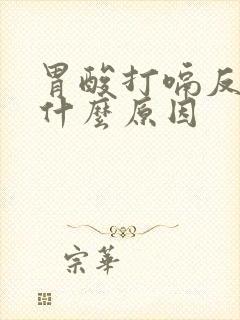 胃酸打嗝反
什麼原因
宗華